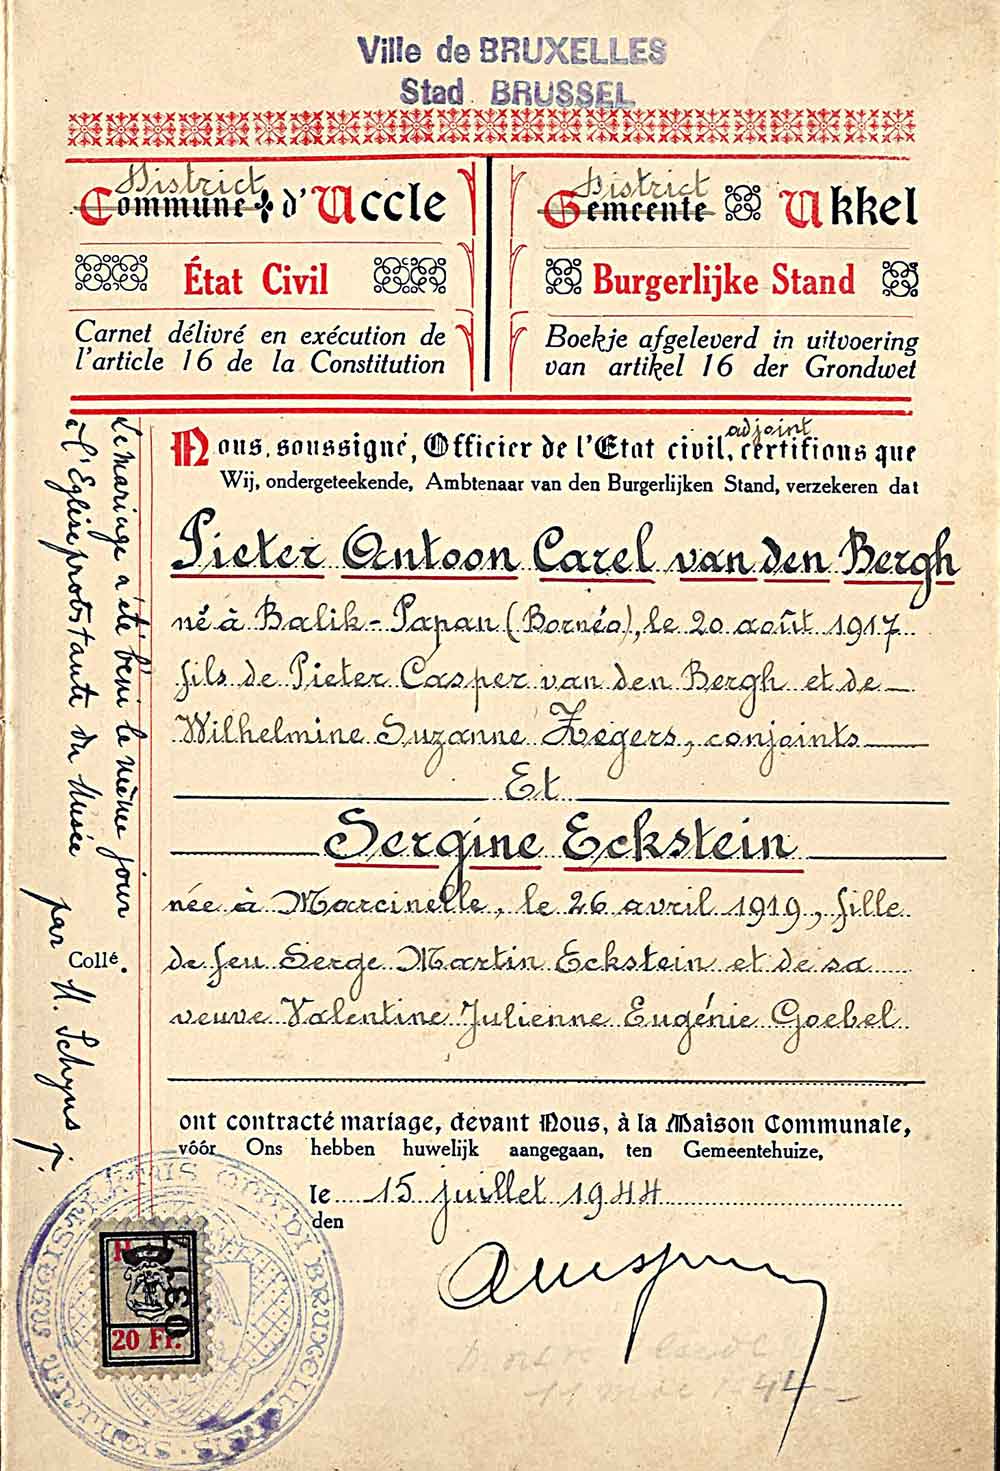 Ville de BRUXELLES
Stad BRUSSEL
District
Commune d'Uccle
État Civil
Carnet délivré en exécution de
l'article 16 de la Constitution
District
Gemeente Ukkel
Burgerlijke Stand
Boekje afgeleverd in uitvoering
van artikel 16 der Grondwet
adjoint
Nous, soussigné, Officier de l'Etat civil, certifions que
Wij, ondergeteekende, Ambtenaar van den Burgerlijken Stand, verzekeren dat
Pieter Antoon Carel van den Bergh
né à Balik-Papan (Bornéo), le 20 août 1917
fils de Pieter Casper van den Bergh et de
Wilhelmine Suzanne Zegers, conjoints
Et
Sergine Eckstein
née à Marcinelle, le 26 avril 1919, fille
de feu Serge Martin Eckstein et de sa
veuve Valentine Julienne Eugénie Goebel
ont contracté mariage, devant Nous, à la Maison Communale,
vóór Ons hebben huwelijk aangegaan, ten Gemeentehuize,
le 15 juillet 1944
den
Le mariage a été béni le même jour
à l'Eglise protestante du Musée
par M. Schyns j.
Collé.
20 Fr.